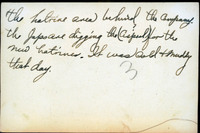 the latrine area behind the company.
the Japs are digging the for the
new latrines. It was cold & muddy
that day.